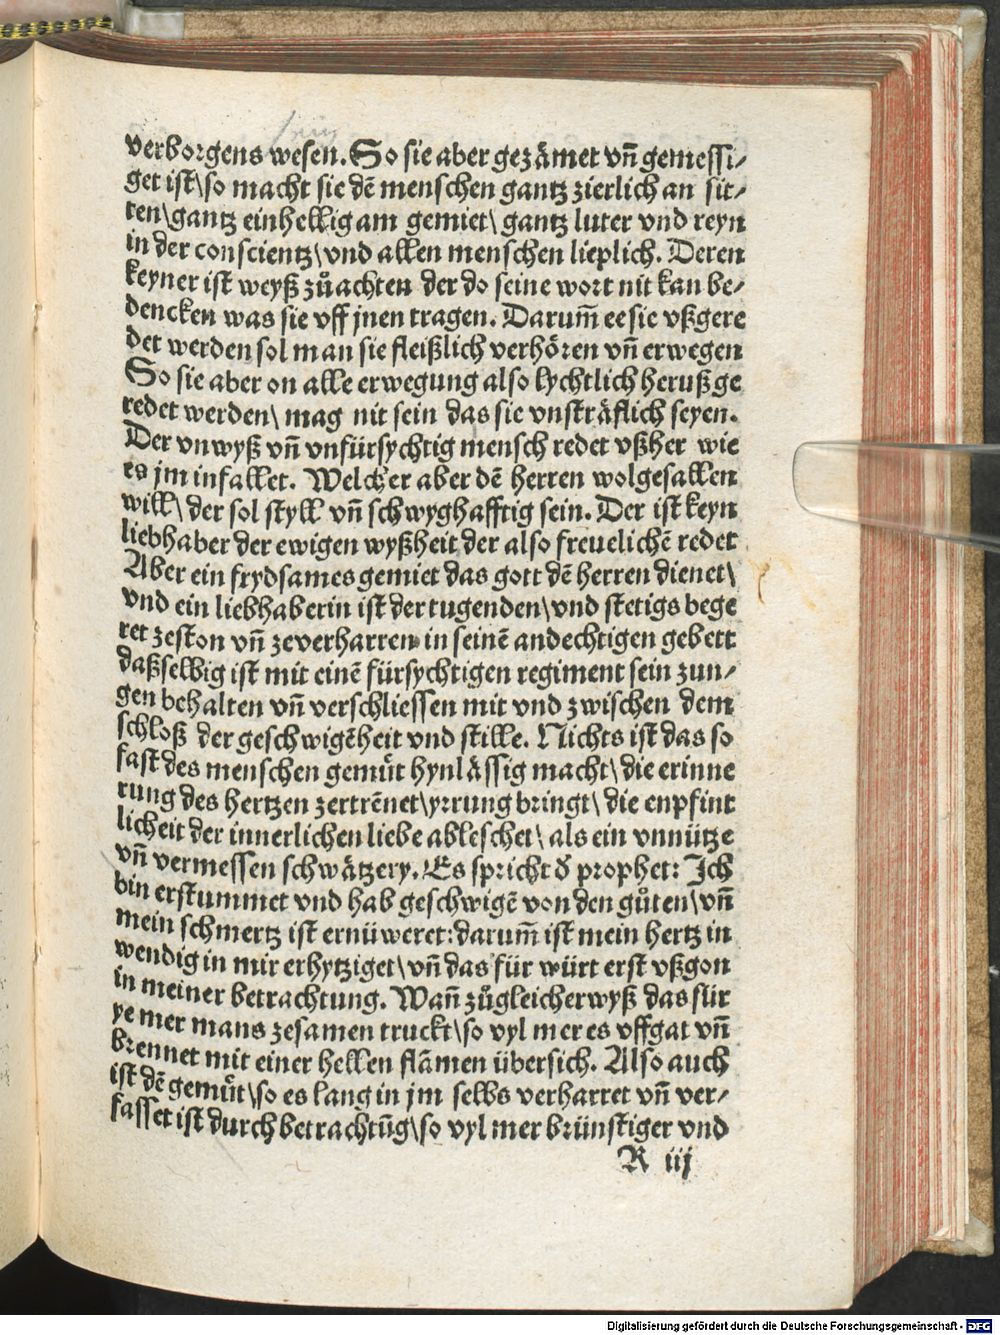 verborgens wesen. So sie aber gezämet vn̄ gemessi⸗
get ist\so macht sie dē menschen gantz zierlich an sit⸗
ten\gantz einhellig am gemiet\ gantz luter vnd reyn
in der conscientz\vnd allen menschen lieplich. Deren
keyner ist weyß zůachten der do seine wort nit kan be⸗
dencken was sie vff jnen tragen. Darum̄ ee sie vßgere
det werden sol man sie fleißlich verhören vn̄ erwegen
So sie aber on alle erwegung also lychtlich heruß ge
redet werden\ mag nit sein das sie vnsträflich seyen.
Der vnwyß vn̄ vnfürsychtig mensch redet vßher wie
es jm infallet. Welcher aber dē herren wolgefallen
will\ der sol styll vn̄ schwyghafftig sein. Der ist keyn
liebhaber der ewigen wyßheit der also freuelichē redet
Aber ein frydsames gemiet das gott dē herren dienet\
vnd ein liebhaberin ist der tugenden\vnd stetigs bege
ret zeston vn̄ zeverharren in seinē andechtigen gebett
daßselbig ist mit einē fürsychtigen regiment sein zun⸗
gen behalten vn̄ verschliessen mit vnd zwischen dem
schloß der geschwigēheit vnd stille. Nichts ist das so
fast des menschen gemůt hynlässig macht\ die erinne
rung des hertzen zertrēnet\yrrung bringt\ die enpfint
licheit der innerlichen liebe ableschet\ als ein vnnütze
vn̄ vermessen schwätzery. Es spricht d̕ prophet: Ich
bin erstummet vnd hab geschwigē von den gůten\vn̄
mein schmertz ist ernüweret: darum̄ ist mein hertz in
wendig in mir erhytziget\vn̄ das für würt erst vßgon
in meiner betrachtung. Wan̄ zůgleicher wyß das für
ye mer mans zesamen truckt\so vyl mer es vffgat vn̄
brennet mit einer hellen flāmen übersich. Also auch
ist dē gemůt\so es lang in jm selbs verharret vn̄ ver⸗
fasset ist durch betrachtūg\so vyl mer brünstiger vnd
R iij
Digitalisierung gefördert durch die Deutsche Forschungsgemeinschaft - DFG